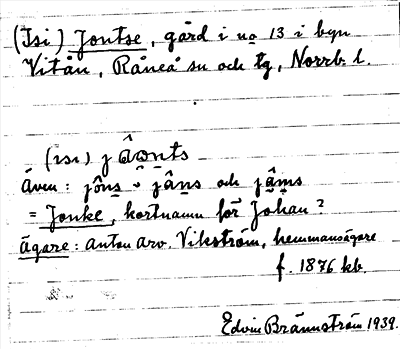 (Isi) Jontse, gård i no 13 i byn
Vitån, Råneå sn och tg, Norrb. l.
(ısı) j
även: jôns j̊âns och jâms
= Jonke, kortnamn för Johan?
ägare: Anton Arv. Vikström, hemmansägare
f. 1876 kb.
Edvin Brännström 1939.